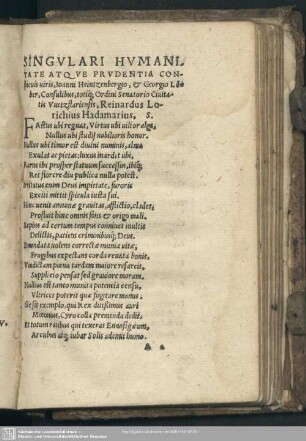 SINGVLARI HVMANI-
TATE ATQVE PRVDENTIA CON-
spicuis viris, Ioanni Heintzenbergio, & Georgio
ber, Consulibus, totiq; Ordini Senatorio Ciuita-
tis Vuetzflariensis, Reinardus Lo-
richius Hadamarius, S.
FAstus ubi regnat, Virtus ubi uilior alga,
Nullus ubi studijs nobilioris honor.
Nullus ubi timor est diuini numinis, alma
Exulat ac pietas: luxus inardet ubi,
Rarus ibi prosper statuum successus, ibiq;
Res florere diu publica nulla potest.
Irritatus enim Deus impietate, furoris
Exciti mittit spicula iusta sui.
Hinc uenit annonæ grauitas, afflictio, clades,
Profluit hinc omnis fons & origo mali.
Sæpius ad certum tempus conniuet multis
Delictis, patiens criminibusq; Deus.
Emendata uolens correctæ munia uitæ,
Frugibus expectans corda reuicta bonis.
Vindictam pœna tardam maiore resarcit,
Supplicio pensat sed grauiore moram.
Nullus est tanto munita potentia censu,
Vltrices poterit quæ fugitare manus:
Sit exemplo, qui Rex ditissimus auri
Mæonius, Cyro colla premenda dedit:
Et totum ratibus qui texerat Ennosigæum,
Arcubus atq; iubar Solis ademit humo.